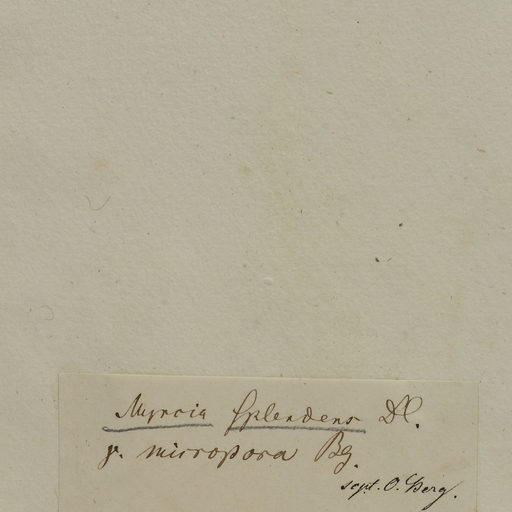 Myrcia splendens DC.
γ. micropora Bg.
scpt. O. Berg.